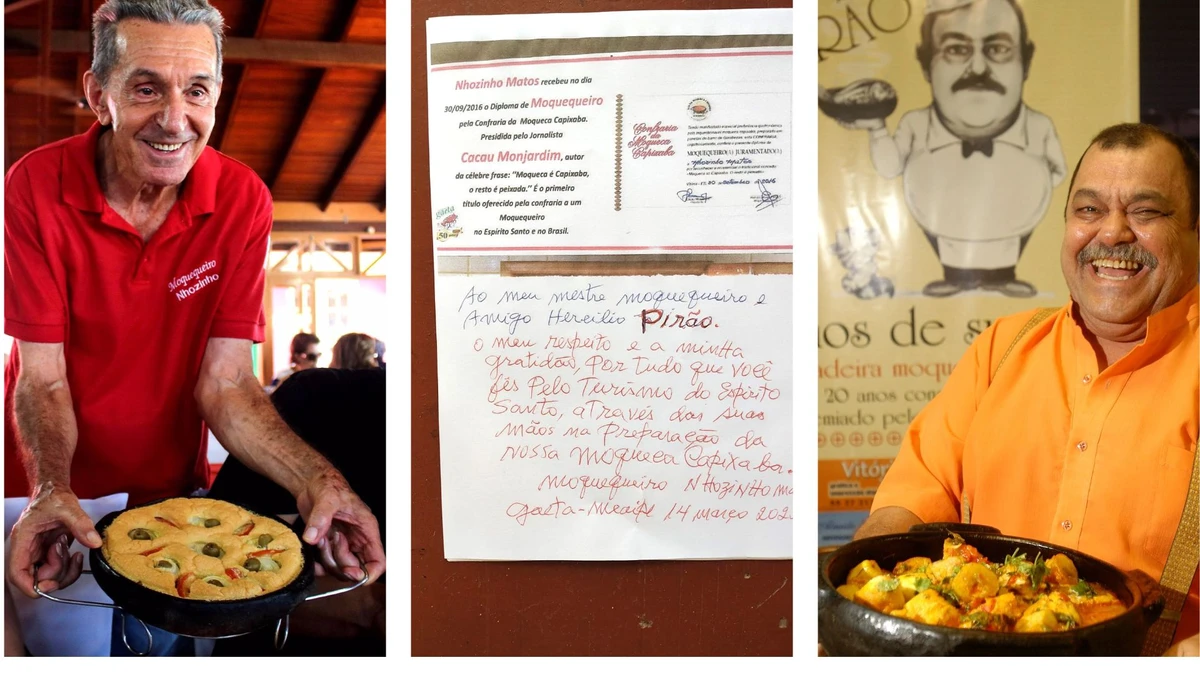 Moquequeiro
Nhozinho
Nhozinho Matos recebeu no dia
30/09/2016 o Diploma de Moquequeiro
pela Confraria da Moqueca Capixaba.
Presidida pelo Jornalista
Cacau Monjardim, autor
da célebre frase: "Moqueca é Capixaba,
o resto é peixada." É o primeiro
título oferecido pela confraria a um
Moquequeiro
no Espírito Santo e no Brasil.
50
Confraria
da
Moqueca
Capixaba
MOQUEQUEIRO( ) JURAMENTADO( )
Ao meu mestre moquequeiro e
Amigo Hercilio Pirão.
o meu respeito e a minha
gratidão, Por tudo que você
fes Pelo Turismo do Espírito
Santo, através das suas
mãos na Preparação da
nossa moqueca Capixaba.
moquequeiro Nhozinho ma
gaeta-Meaípe 14 março 202
RÃO
nos de s
adeira moque
20 anos con
emiado pel
Vitór